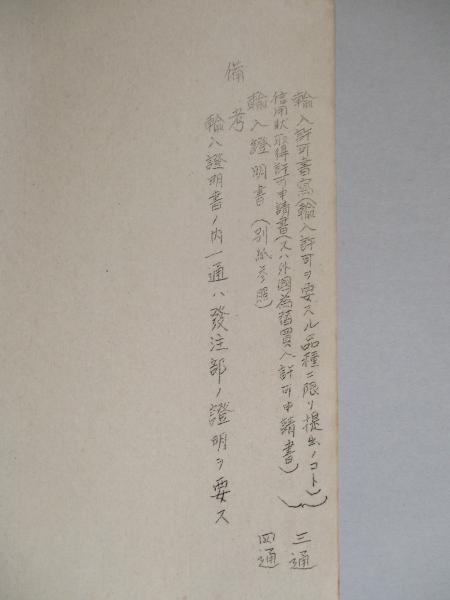 輸入許可書寫(輸入許可ヲ要スル品種ニ限リ提出ノコト) 三通
信用狀取得許可申請書(又ハ外國為替買入許可申請書)
輸入證明書(別紙参照) 四通
備考
輸入證明書ノ内一通ハ發注部ノ證明ヲ要ス